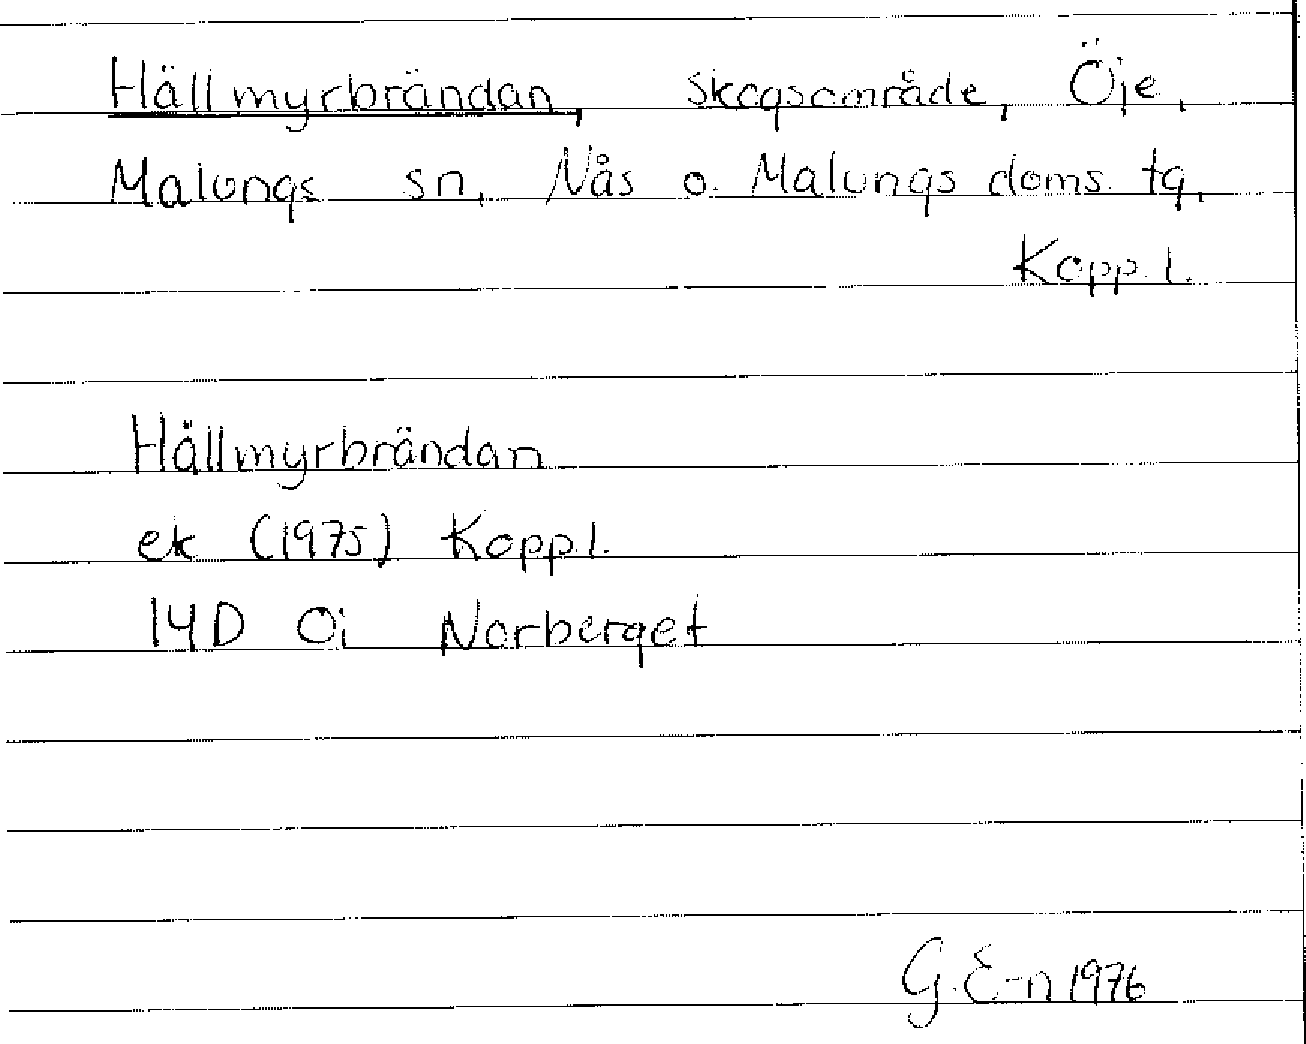 Hällmyrbrändan, skogsområde, Öje,
Malungs sn, Nås o. Malungs doms. tg,
Kopp. l.
Hållmyrbrändan
ek (1975) Kopp l.
14D 0i Norberget
G. E-n 1976